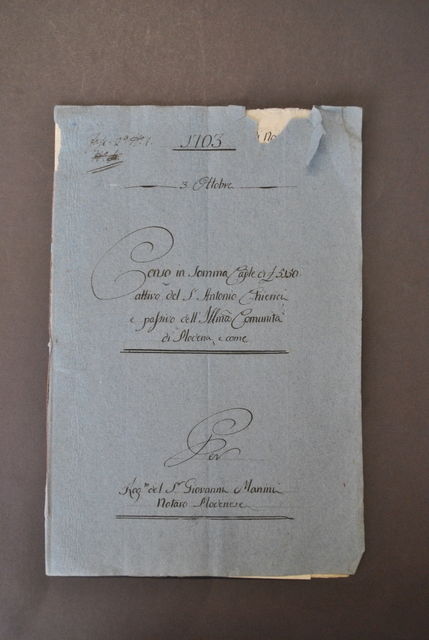 1703
3 Ottobre
Censo in somma Caple di £ 5550
attivo del Sr. Antonio
e passivo dell' Illma Comunità
di Modena, e come
Per
Rogo del Sr. Giovanni Manini
Notaro Modenese